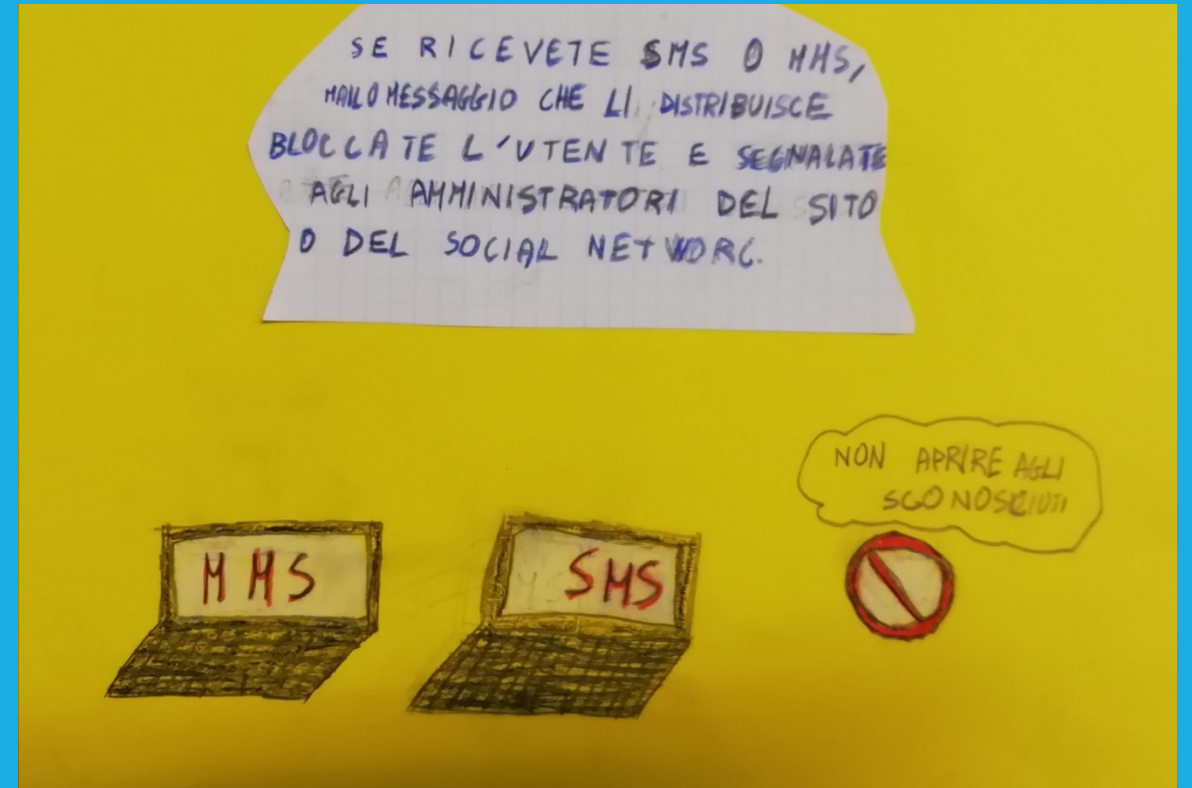 SE RICEVETE SMS O MMS,
MAIL O MESSAGGIO CHE LI DISTRIBUISCE
BLOCCATE L'UTENTE E SEGNALATE
AGLI AMMINISTRATORI DEL SITO
O DEL SOCIAL NETWORC.
NON APRIRE AGLI
SCONOSCIUTI
MMS
SMS